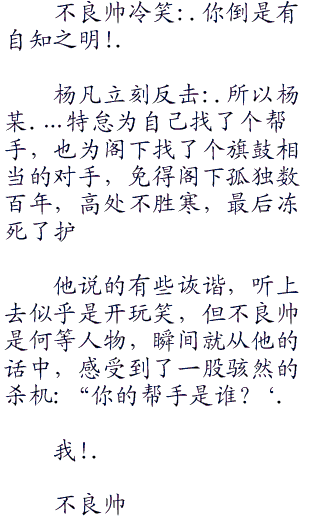 不良帅冷笑:.你倒是有
自知之明!.
杨凡立刻反击:.所以杨
某....特怠为自己找了个帮
手，也为阁下找了个旗鼓相
当的对手，免得阁下孤独数
百年，高处不胜寒，最后冻
死了护
他说的有些诙谐，听上
去似乎是开玩笑，但不良帅
是何等人物，瞬间就从他的
话中，感受到了一股骇然的
杀机:“你的帮手是谁？‘.
我!.
不良帅